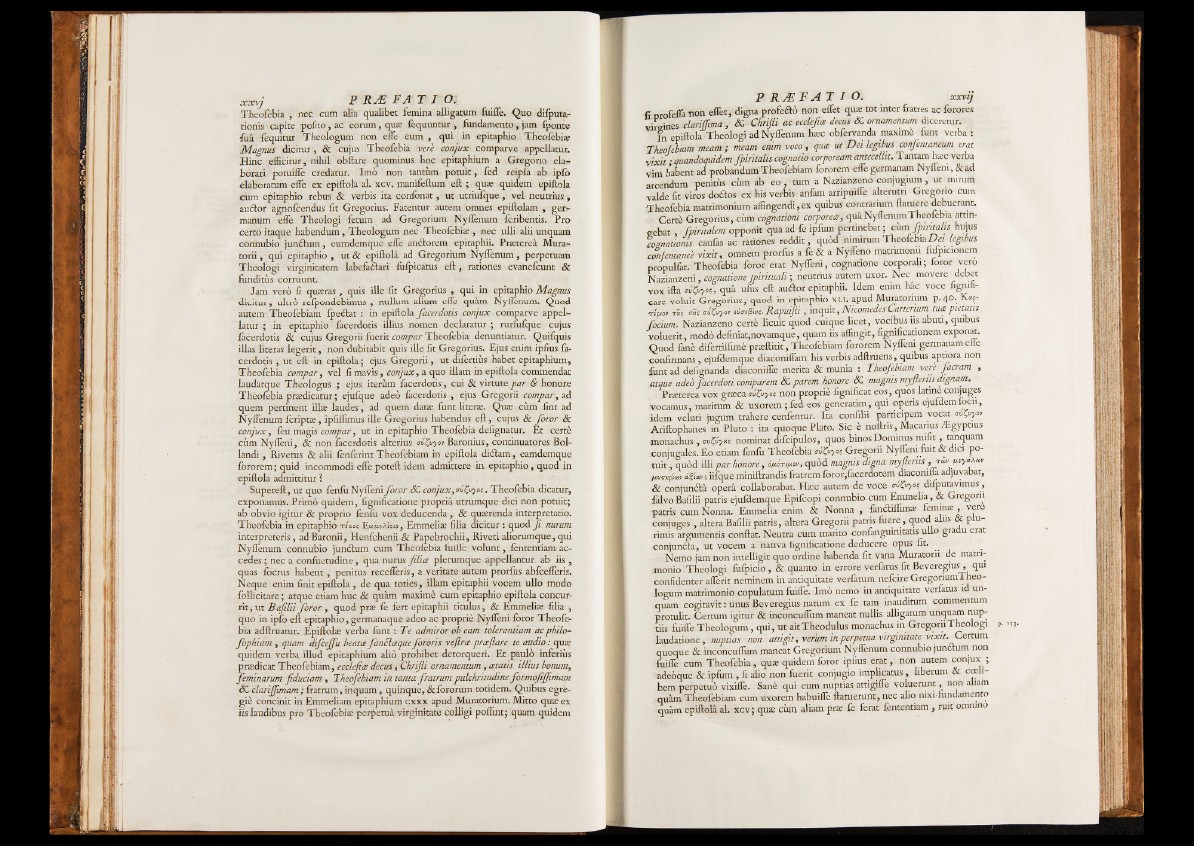 xxvj PRÆFATIO.
Theosebia , nec cum alia qualibet femina alligatum fuisse. Quo disputa-
tionis capite posito , ac eorum , quæ sequuntur , fundamento , jam sponte
suâ sequitur Theologum non esse eum , qui in epitaphio Theosebiæ
Magnus dicitur , & cujus Theosebia verè conjux comparve appellatur.
Hinc efficitur , nihil obstare quominus hoc epitaphium a Gregorio ela-
borari potuisse credatur. Imò non tantùm potuit , sed reipsa ab ipso
elaboratum esse ex epistola al. xcv. manifestum est ; quæ quidem epistola
cum epitaphio rebus & verbis ita consonat , ut utriusque , vel neutrius ,
auctor agnoscendus sit Gregorius. Fatentur autem omnes epistolam , ger-
manum esse Theologi fetum ad Gregorium Nyssenum scribentis. Pro
certo itaque habendum , Theologum nec Theosebiæ , nec ulli alii unquam
connubio junctum , eumdemque esse auctorem epitaphii. Prætereà Mura-
torii , qui epitaphio , ut & epistolâ ad Gregorium Nyssenum , perpetuam
Theologi virginitatem labefactari suspicatus est , rationes evanescunt &
funditùs corruunt.
Jam verò si quæras , quis ille sit Gregorius , qui in epitaphio Magnus
dicitur , ultrò respondebimus , nullum alium esse quàm Nyssenum. Quod
autem Theosebiam spectat : in epistola sacerdotis conjux comparve appel-
latur ; in epitaphio sacerdotis illius nomen declaratur ; rursusque cujus
sacerdotis & cujus Gregorii fuerit compar Theosebia denuntiatur. Quisquis
illas literas legerit , non dubitabit quis ille sit Gregorius. Ejus enim ipsius sa-
cerdotis , ut est in epistola ; ejus Gregorii , ut disertiùs habet epitaphium,
Theosebia compar , vel si mavis , conjux , a quo illam in epistola commendat
laudatque Theologus ; ejus iterùm sacerdotis , cui & virtute par & honore
Theosebia prædicatur ; ejusque adeò sacerdotis , ejus Gregorii compar , ad
quem pertinent illæ laudes , ad quem datæ sunt literæ. Quæ cùm sint ad
Nyssenum scriptæ , ipsissimus ille Gregorius habendus est , cujus & soror &
conjux , seu magis compar , ut in epitaphio Theosebia designatur. Et certè
cùm Nysseni , & non sacerdotis alterius σύζυγον Baronius , continuatores Bol-
landi , Rivetus & alii senserint Theosebiam in epistola dictam , eamdemque
sororem ; quid incommodi esse potest idem admittere in epitaphio , quod in
epistola admittitur ?
Superest , ut quo sensu Nysseni soror & conjux , σύζυγος. Theosebia dicatur,
exponamus. Primò quidem , significatione propriâ utrumque dici non potuit;
ab obvio igitur & proprio sensu vox deducenda , & quærenda interpretatio.
Theosebia in epitaphio τέκος Εμμελίου , Emmeliæ filia dicitur : quod si nurum
interpreteris , ad Baronii , Henschenii & Papebrochii , Riveti aliorumque , qui
Nyssenum connubio junctum cum Theosebia fuisse volunt , sententiam ac-
cedes ; nec a consuetudine , qua nurus filiæ plerumque appellantur ab iis ,
quas socrus habent , penitus recesseris , a veritate autem prorsus abscesseris.
Neque enim sinit epistola , de qua toties , illam epitaphii vocem ullo modo
sollicitare ; atque etiam huc & quàm maximè cum epitaphio epistola concur-
rit , ut Basilii soror , quod præ se fert epitaphii titulus , & Emmeliæ filia ,
quo in ipso est epitaphio , germanaque adeo ac propriè Nysseni soror Theose-
bia adstruatur. Epistolæ verba sunt : Te admiror ob eam tolerantiam ac philo-
sophiam , quam discessu beatæ sanctæque sororis vestræ præstare te audio : quæ
quidem verba illud epitaphium aliò prohibet detorqueri. Et paulò inferiùs
prædicat Theosebiam , ecclesiæ decus , Christi ornamentum , ætatis illius bonum,
feminarum fiduciam , Theosebiam in tanta fratrum pulchritudine formosissimam
& clarissimam ; fratrum , inquam , quinque , & sororum totidem. Quibus egre-
giè concinit in Emmeliam epitaphium cxxx apud Muratorium. Mitto quæ ex
iis laudibus pro Theosebiæ perpetuâ virginitate colligi possint ; quam quidem
PRÆFATIO. xxvij
si professa non esset, digna profectò non esset quæ tot inter fratres ac sorores
virgines clarissima , & Christi ac ecclesiæ decus & ornamentum diceretur.
In epistola Theologi ad Nyssenum hæc observanda maximè sunt verba :
Theosebiam meam ; meam enim voco , quæ ut Dei legibus consentaneum erat
vixit ; quandoquidem spiritalis cognatio corpoream antecellit. Tantam hæc verba
vim habent ad probandum Theosebiam sororem esse germanam Nysseni, & ad
arcendum penitùs cùm ab eo , tum a Nazianzeno conjugium , ut mirum
valde sit viros doctos ex his verbis ansam arripuisse alterutri Gregorio cum
Theosebia matrimonium affingendi , ex quibus contrarium statuere debuerant.
Certè Gregorius, cùm cognationi corporeæ, quâ Nyssenum Theosebia attin-
gebat , spiritalem opponit qua ad se ipsum pertinebat ; cùm spiritalis hujus
cognationis causas ac rationes reddit , quòd nimirum Theosebia Dei legibus
consentaneè vixit , omnem prorsus a se & a Nysseno matrimonii suspicionem
propulsat. Theosebia soror erat Nysseni, cognatione corporali; soror verò
Nazianzeni , cognatione spirituali ; neutrius autem uxor. Nec movere debet
vox ista σύζυγος, quâ usus est auctor epitaphii. Idem enim hâc voce signifi-
care voluit Gregorius, quod in epitaphio xli. apud Muratorium p. 40. Καρ-
τέριον τᾶς σᾶς σύζυγον εὐσεβίας. Rapuisti , inquit, Nicomedes Carterium tuæ pietatis
socium. Nazianzeno certè licuit quod cuique licet , vocibus iis abuti , quibus
voluerit , modò definiat, novamque , quam iis affingit, significationem exponat.
Quod sanè disertissimè præstitit , Theosebiam sororem Nysseni germanam esse
confirmans , ejusdemque diaconissam his verbis adstruens , quibus aptiora non
sunt ad designanda diaconissæ merita & munia : Theosebiam verè sacram ,
atque adeò sacerdoti comparem & parem honore & magnis mysteriis dignam.
Præterea vox græca σύζυγος non propriè significat eos , quos latinè conjuges
vocamus, maritum & uxorem ; sed eos generatim, qui operis ejusdem socii,
idem veluti jugum trahere censentur. Ita consilii participem vocat σύζυγον
Aristophanes in Pluto : ita quoque Plato. Sic è nostris , Macarius Ægyptius
monachus , συζύγες nominat discipulos, quos binos Dominus misit , tanquam
conjugales. Eo etiam sensu Theosebia σύζυγος Gregorii Nysseni fuit & dici po-
tuit , quòd illi par honore , ὁμότιμον, quòd magnis digna mysteriis , τῶν μεγάλων
μυστηρίων ἀξίαν ; iisque ministrandis fratrem soror, sacerdotem diaconissa adjuvabat,
& conjunctâ operâ collaborabat. Hæc autem de voce σύζυγος disputavimus ,
salvo Basilii patris ejusdemque Episcopi connubio cum Emmelia , & Gregorii
patris cum Nonna. Emmelia enim & Nonna , sanctissimæ feminæ , verè
conjuges , altera Basilii patris , altera Gregorii patris fuere , quod aliis & plu-
rimis argumentis constat. Neutra cum marito consanguinitatis ullo gradu erat
conjuncta, ut vocem a nativa significatione deducere opus sit.
Nemo jam non intelligit quo ordine habenda sit vana Muratorii de matri-
monio Theologi suspicio , & quanto in errore versatus sit Beveregius , qui
confidenter asserit neminem in antiquitate versatum nescire Gregorium Theo-
logum matrimonio copulatum fuisse. Imò nemo in antiquitate versatus id un-
quam cogitavit : unus Beveregius natum ex se tam inauditum commentum
protulit. Certum igitur & inconcussum maneat nullis alligatum unquam nup-
tiis fuisse Theologum , qui, ut ait Theodulus monachus in Gregorii Theologi p. 153.
laudatione , nuptias non attigit, verùm in perpetua virginitate vixit. Certum
quoque & inconcussum maneat Gregorium Nyssenum connubio junctum non
fuisse cum Theosebia , quæ quidem soror ipsius erat , non autem conjux ;
adeòque & ipsum , si alio non fuerit conjugio implicatus , liberum & cœli-
bem perpetuò vixisse. Sanè qui eum nuptias attigisse voluerunt , non aliam
quàm Theosebiam eum uxorem habuisse statuerunt, nec alio nixi fundamento
quàm epistolâ al. xcv ; quæ cùm aliam præ se ferat sententiam , ruit omnino